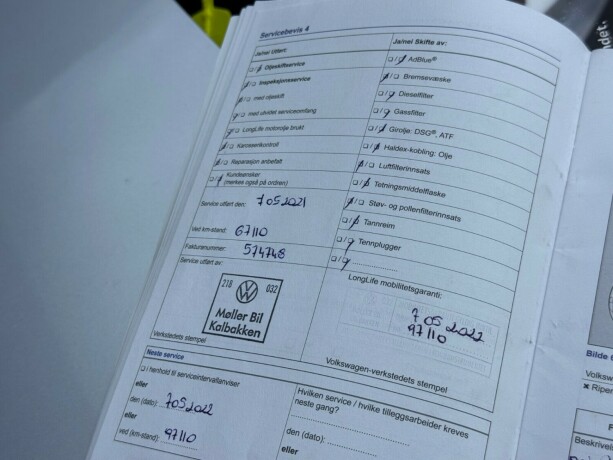 Servicebevis 4
Ja/nei Utført:
Oljeskiftservice
Inspeksjonsservice
med oljeskift
med utvidet serviceomfang
LongLife motorolje brukt
Karosserikontroll
Reparasjon anbefalt
Kundeønsker
(merkes også på ordren)
Service utført den: 7 05 2021
Ved km-stand: 67110
Fakturanummer: 574748
Service utført av:
218 032
Møller Bil
Kalbakken
Verkstedets stempel
Ja/nei Skifte av:
AdBlue®
Bremsevæske
Dieselfilter
Gassfilter
Girolje: DSG®, ATF
Haldex-kobling: Olje
Luftfilterinnsats
Tetningsmiddelflaske
Støv- og pollenfilterinnsats
Tannreim
Tennplugger
LongLife mobilitetsgaranti:
7 05 2022
97110
Volkswagen-verkstedets stempel
Neste service
i henhold til serviceintervallanviser
eller
den (dato): 7 05 2022
eller
ved (km-stand): 97110
Hvilken service / hvilke tilleggsarbeider kreves
neste gang?
den (dato):
eller
det.
Bilde
Volksw